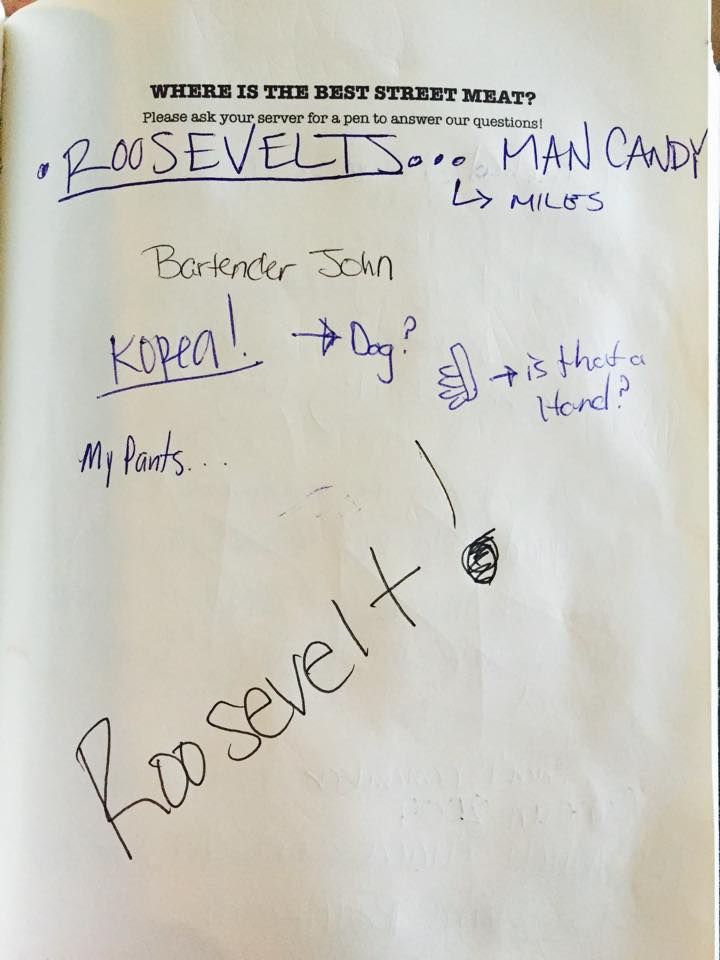 WHERE IS THE BEST STREET MEAT?
Please ask your server for a pen to answer our questions!
. ROOSEVELTS... MAN CANDY
↳ MILES
Bartender John
Korea! → Dog?
→ is that a
Hand?
My Pants...
Roosevelt!